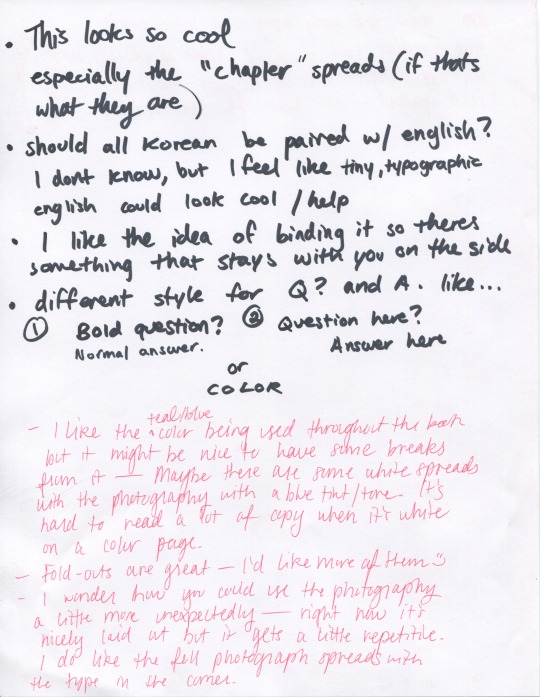 • This looks so cool
especially the "chapter" spreads (if thats
what they are)
• should all Korean be paired w/ english?
I dont know, but I feel like tiny, typographic
english could look cool / help
• I like the idea of binding it so theres
something that stays with you on the side
• different style for Q? and A. like...
① Bold question? ② Question here?
Normal answer. Answer here
or
COLOR
teal/blue
– I like the ^ color being used throughout the book
but it might be nice to have some breaks
from it — Maybe there are some white spreads
with the photography with a blue tint/tone. It's
hard to read a lot of copy when it's white
on a color page.
– Fold-outs are great — I'd like more of them :)
– I wonder how you could use the photography
a little more unexpectedly — right now it's
nicely laid out but it gets a little repetitive.
I do like the full photograph spreads with
the type in the corner.